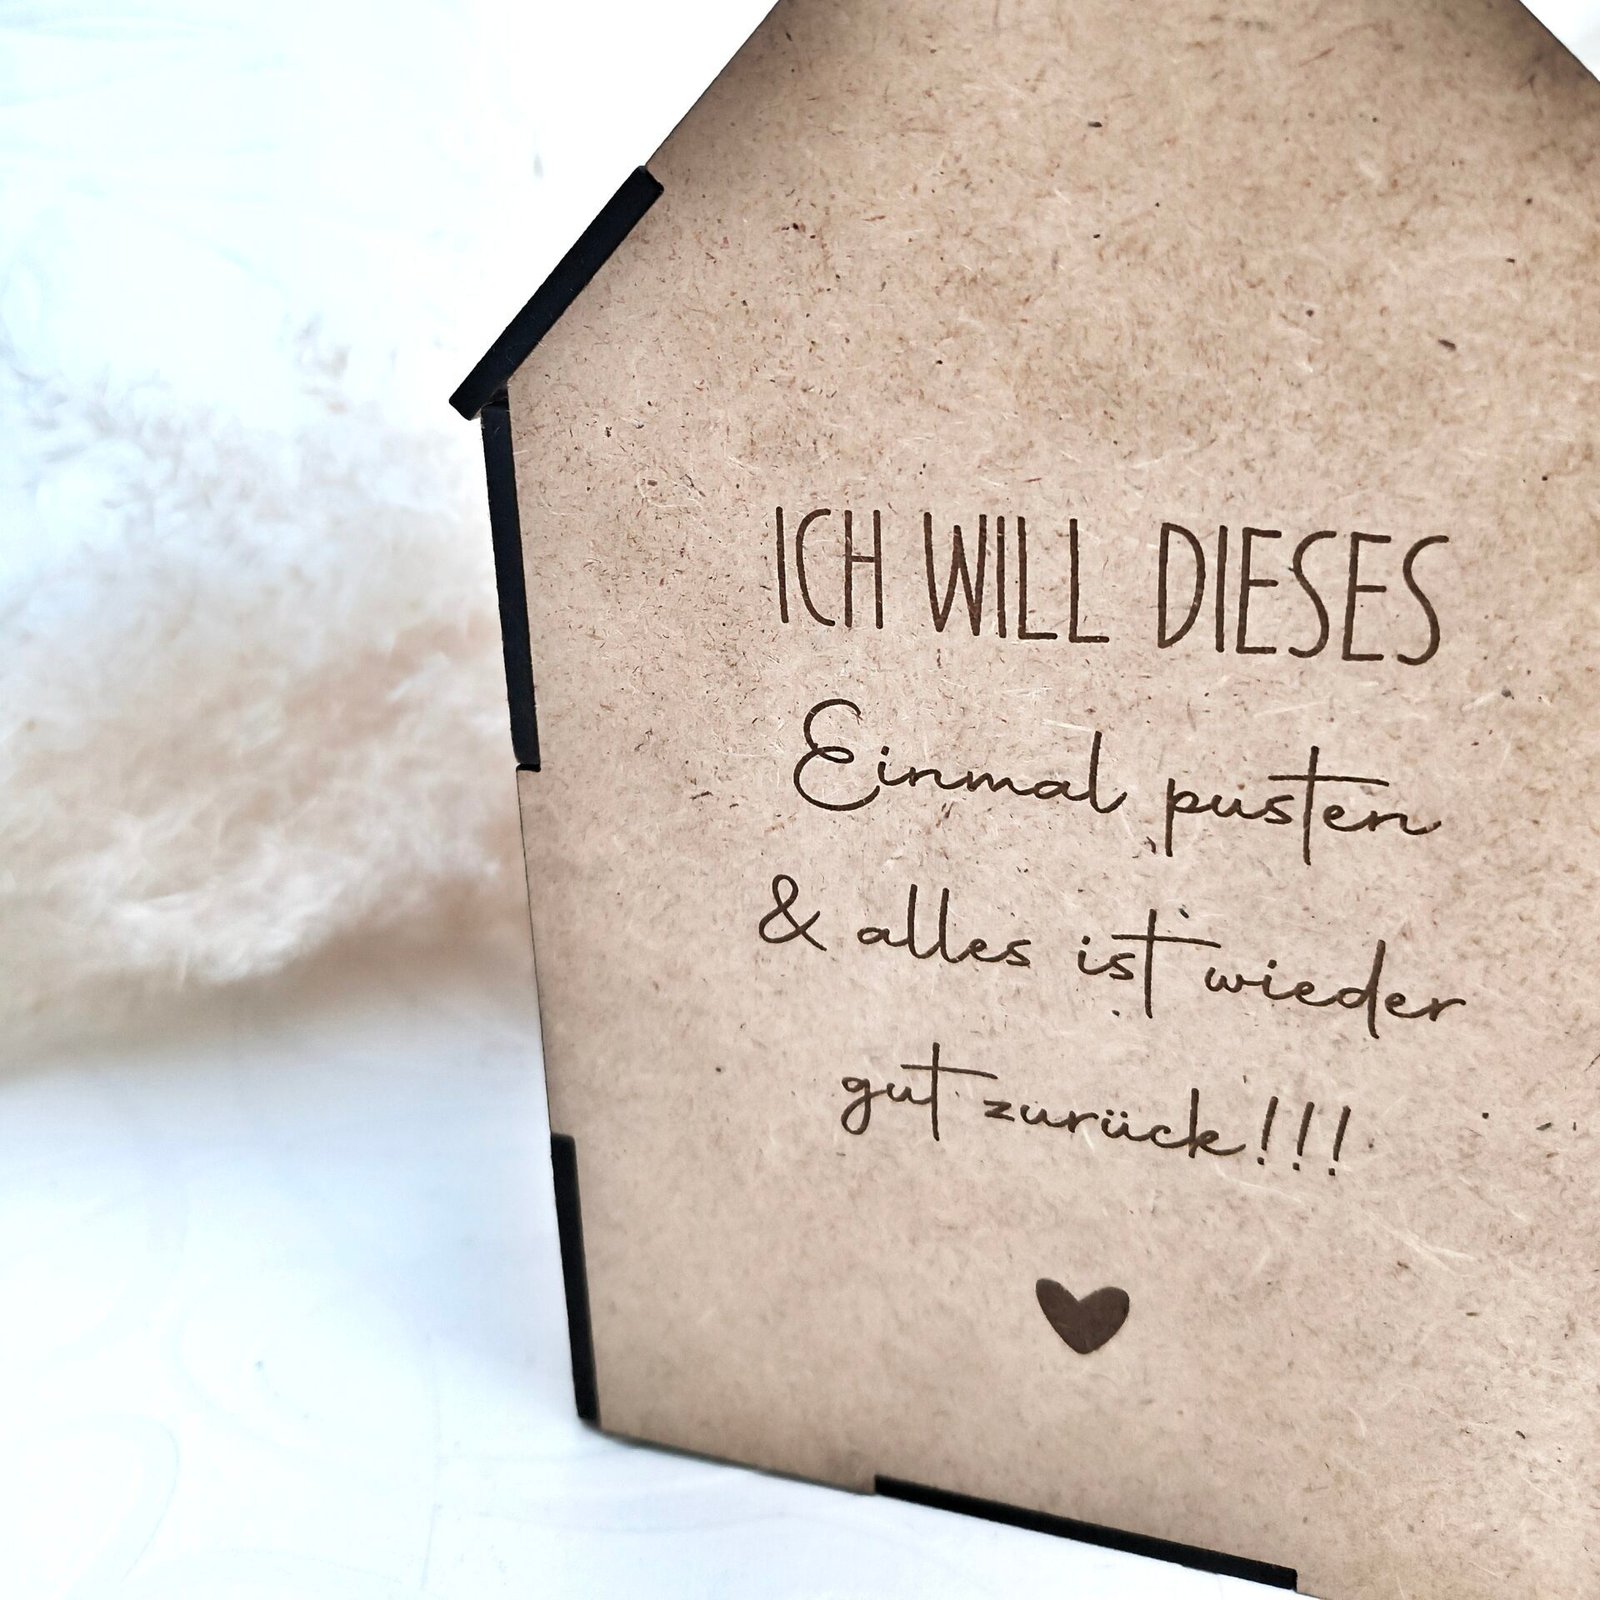 ICH WILL DIESES
Einmal pusten
& alles ist wieder
gut zurück!!!